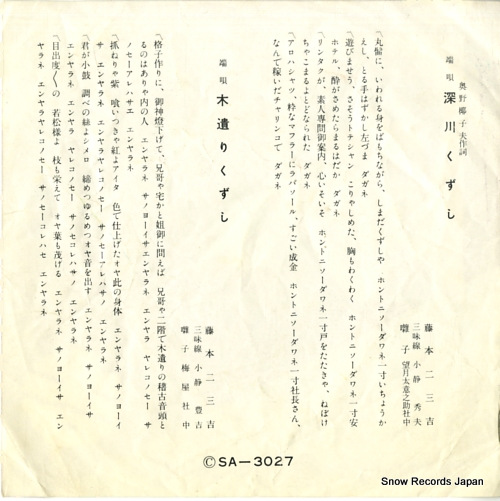 奥野椰子夫作詞
端唄 深川くずし
藤本二三吉
三味線 小静 秀夫
囃子 望月太意之助社中
丸髷に、いわれる身をばもちながら、しまだくずしや ホントニソーダワネ一寸いちょうか
えし、とる手はずかし左づま ダガネ
遊びませう、さそうトテシャン こりゃしめた、胸もわくわく ホントニソーダワネ一寸安
ホテル、酔がさめたらまるはだか ダガネ
リンタクが、素人専問御案内、心いそいそ ホントニソーダワネ一寸戸をたたきゃ、ねぼけ
ちゃこまるよとどなられた ダガネ
アロハシャツ、粋なマフラーにラバソール、すごい成金 ホントニソーダワネ一寸社長さん、
なんで稼いだチャリンコで ダガネ
端唄 木遣りくずし
藤本二三吉
三味線 小静 豊吉
囃子 梅屋社中
格子作りに、御神燈下げて、兄哥ゃ宅かと姐御に問えば 兄哥ゃ二階で木遣りの稽古音頭と
るのはありゃ内の人 エンヤラネ サノヨーイサエンヤラネ エンヤラ ヤレコノセー サ
ノセーアレハサエ エンヤラネ
抓ねりゃ紫 喰いつきゃ紅よアイタ 色で仕上げたオヤ此の身体 エンヤラネ サノヨーイ
サ エンヤラネ エンヤラヤレコノセー サノセーアレハサノ エンヤラネ
君が小鼓 調べの絲よシメロ 締めつゆるめつオヤ音を出す エンヤラネ サノヨーイサ
エンヤラネ エンヤラ ヤレコノセー サノセコレハサノ エンヤラネ
目出度〱の 若松様よ 枝も栄えて オヤ葉も茂げる エンヤラネ サノヨーイサ エン
ヤラネ エンヤラヤレコノセー サノセーコレハセ エンヤラネ
ⒸSA-3027
Snow Records Japan